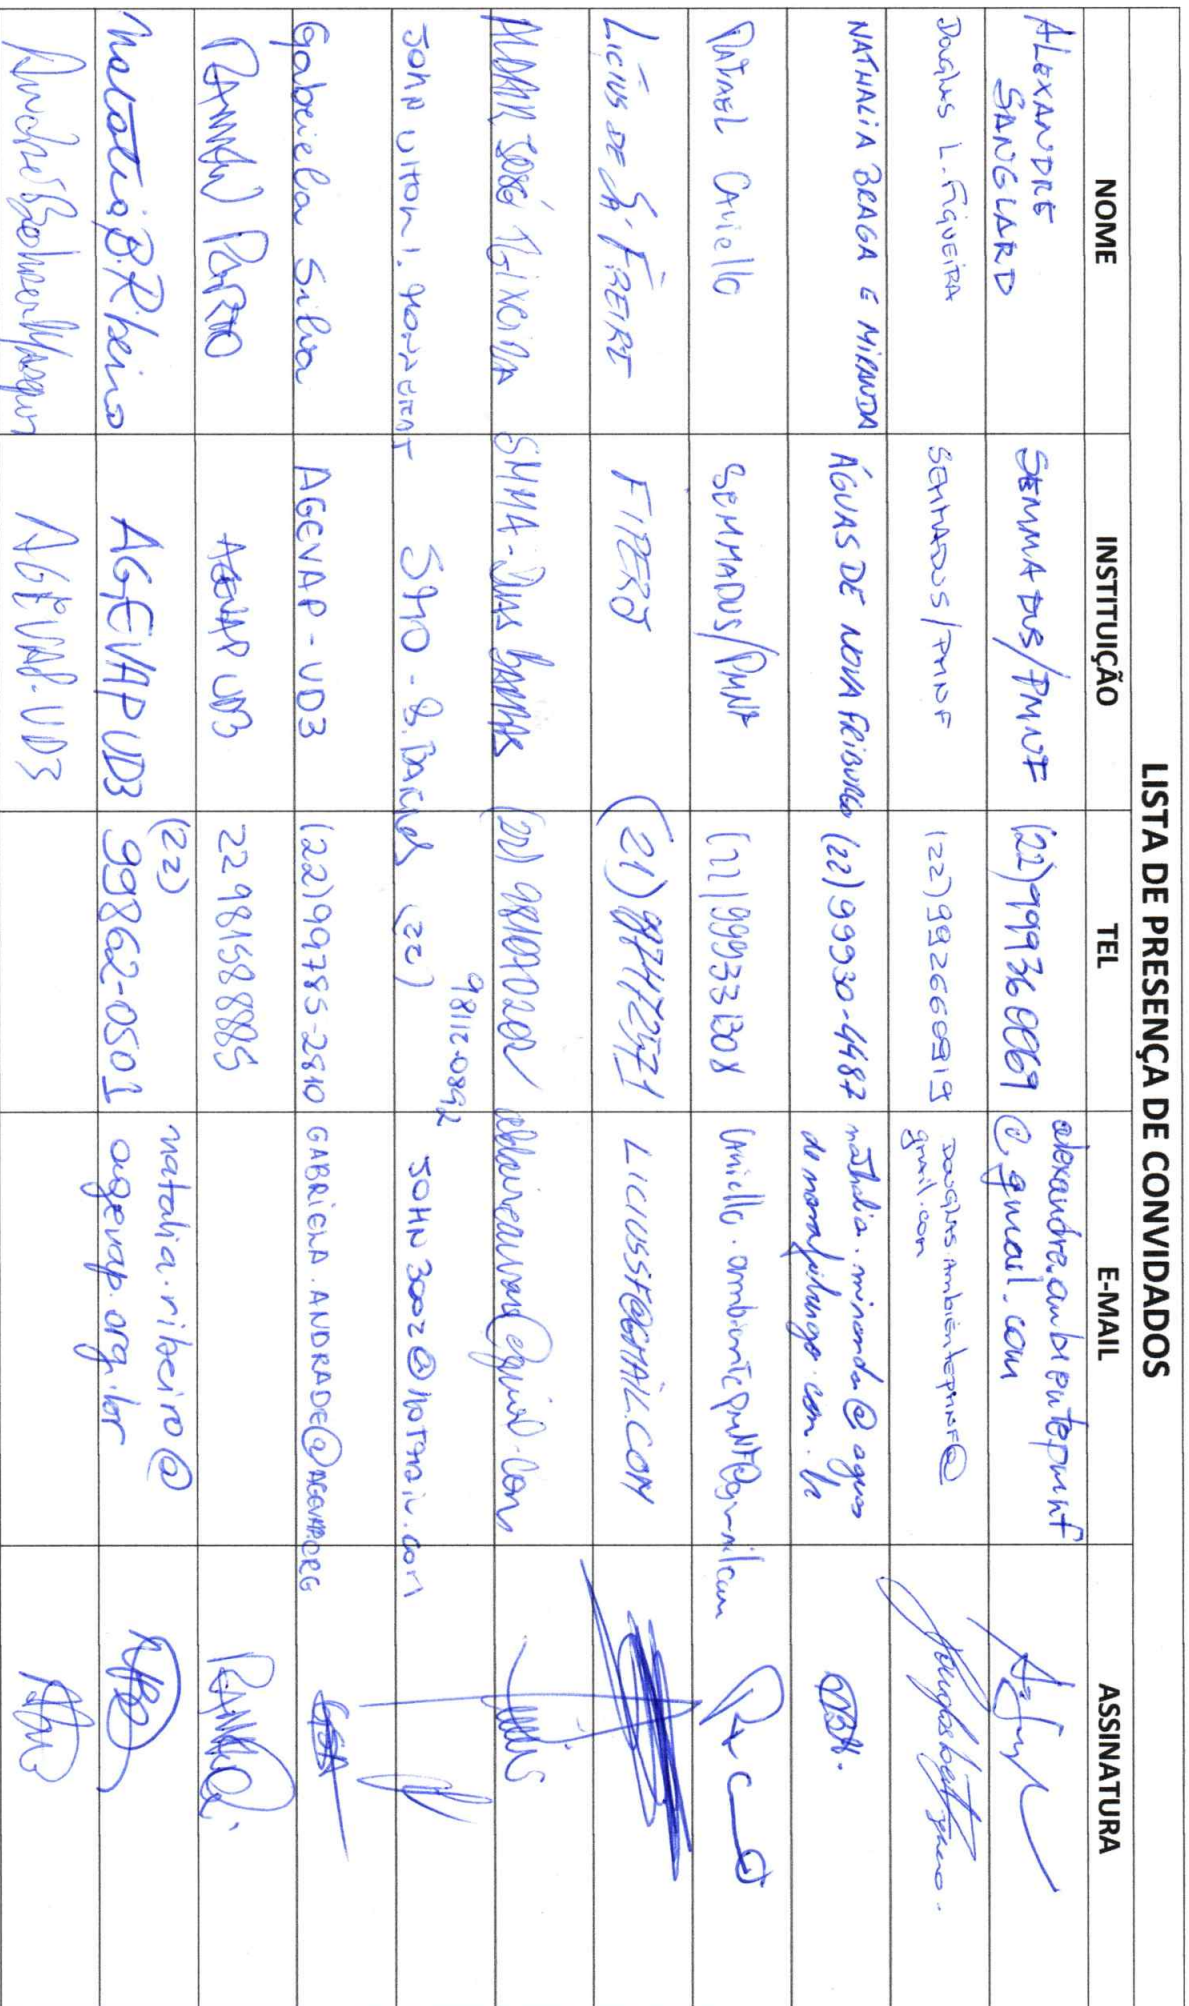 LISTA DE PRESENÇA DE CONVIDADOS
NOME INSTITUIÇÃO TEL E-MAIL ASSINATURA
ALEXANDRE SANGLARD SEMMADUS/PMNF (22)999360069 alexandre.ambientepmnf
@gmail.com
Douglas L. Figueira SEMMADUS/PMNF (22)992666919 Douglas.ambientepmnf@
gmail.com
NATHALIA BRAGA E MIRANDA ÁGUAS DE NOVA FRIBURGO (22)99930-4487 nathalia.miranda@aguas
denovafriburgo.com.br
RAFAEL Caniello SEMMADUS/PMNF (22)999331308 Caniello.ambientepmnf@gmail.com
Licius de Sá Freire FIPERJ (21) LICIUSSF@GMAIL.COM
José Teixeira SMMA-Duas Barras (22)
JOHN - D. Barras (22)
98112-0892 JOHN30002@hotmail.com
Gabriela Silva AGEVAP-UD3 (22)99785-2810 GABRIELA.ANDRADE@AGEVAP.ORG
RANNAN PORTO AGEVAP UD3 22981588885
Natália B. Ribeiro AGEVAP UD3 (22)
99862-0501 natalia.ribeiro@
agevap.org.br
AGEVAP-UD3